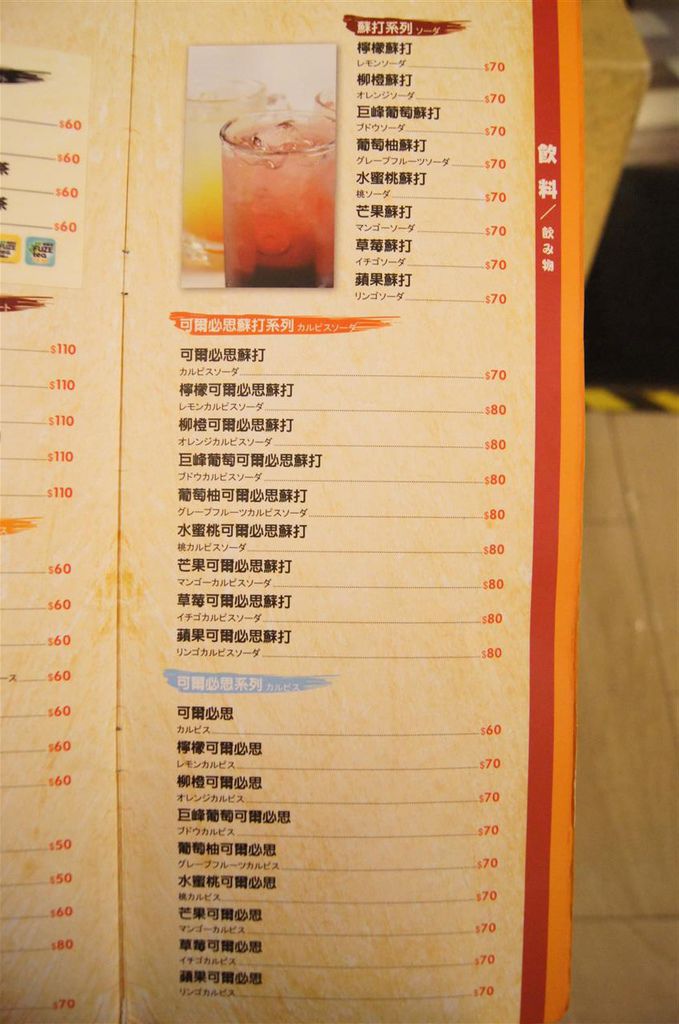 $60
$60
茶
$60
茶
$60
TEA
$110
$110
$110
$110
$110
$60
$60
$60
ース
$60
$60
$60
$60
$50
$50
$60
$80
$70
蘇打系列 ソーダ
檸檬蘇打
レモンソーダ $70
柳橙蘇打
オレンジソーダ $70
巨峰葡萄蘇打
ブドウソーダ $70
葡萄柚蘇打
グレープフルーツソーダ $70
水蜜桃蘇打
桃ソーダ $70
芒果蘇打
マンゴーソーダ $70
草莓蘇打
イチゴソーダ $70
蘋果蘇打
リンゴソーダ $70
可爾必思蘇打系列 カルピスソーダ
可爾必思蘇打
カルピスソーダ $70
檸檬可爾必思蘇打
レモンカルピスソーダ $80
柳橙可爾必思蘇打
オレンジカルピスソーダ $80
巨峰葡萄可爾必思蘇打
ブドウカルピスソーダ $80
葡萄柚可爾必思蘇打
グレープフルーツカルピスソーダ $80
水蜜桃可爾必思蘇打
桃カルピスソーダ $80
芒果可爾必思蘇打
マンゴーカルピスソーダ $80
草莓可爾必思蘇打
イチゴカルピスソーダ $80
蘋果可爾必思蘇打
リンゴカルピスソーダ $80
可爾必思系列 カルピス
可爾必思
カルピス $60
檸檬可爾必思
レモンカルピス $70
柳橙可爾必思
オレンジカルピス $70
巨峰葡萄可爾必思
ブドウカルピス $70
葡萄柚可爾必思
グレープフルーツカルピス $70
水蜜桃可爾必思
桃カルピス $70
芒果可爾必思
マンゴーカルピス $70
草莓可爾必思
イチゴカルピス $70
蘋果可爾必思
リンゴカルピス $70
飲料／飲み物